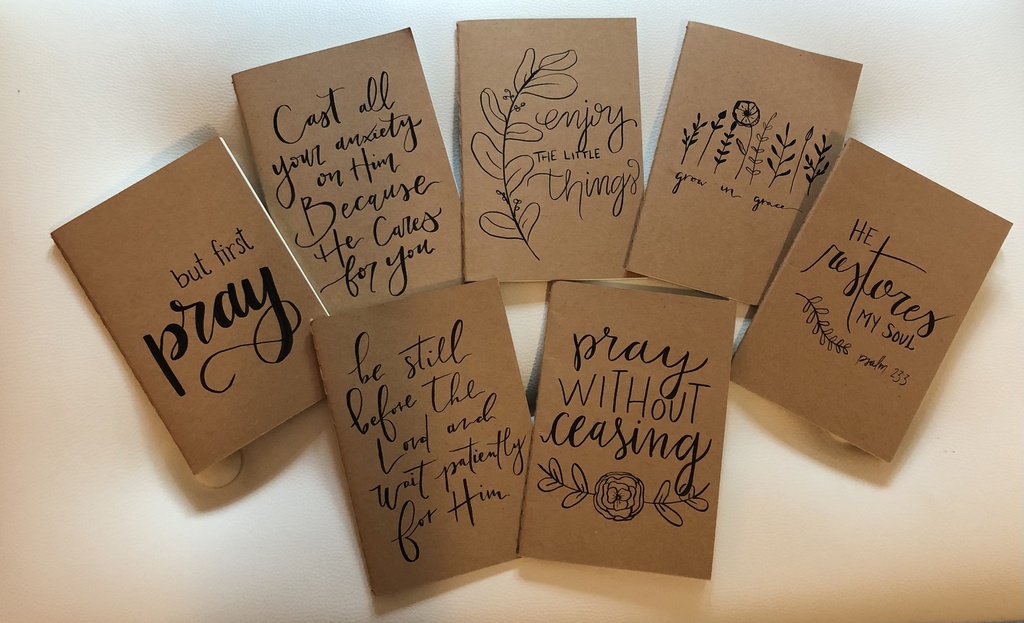 but first
pray
Cast all
your anxiety
on Him
Because
He Cares
for you
enjoy
THE LITTLE
things
grow in grace
HE
restores
MY SOUL
psalm 23:3
be still
before the
Lord and
wait patiently
for Him
pray
WITHOUT
ceasing